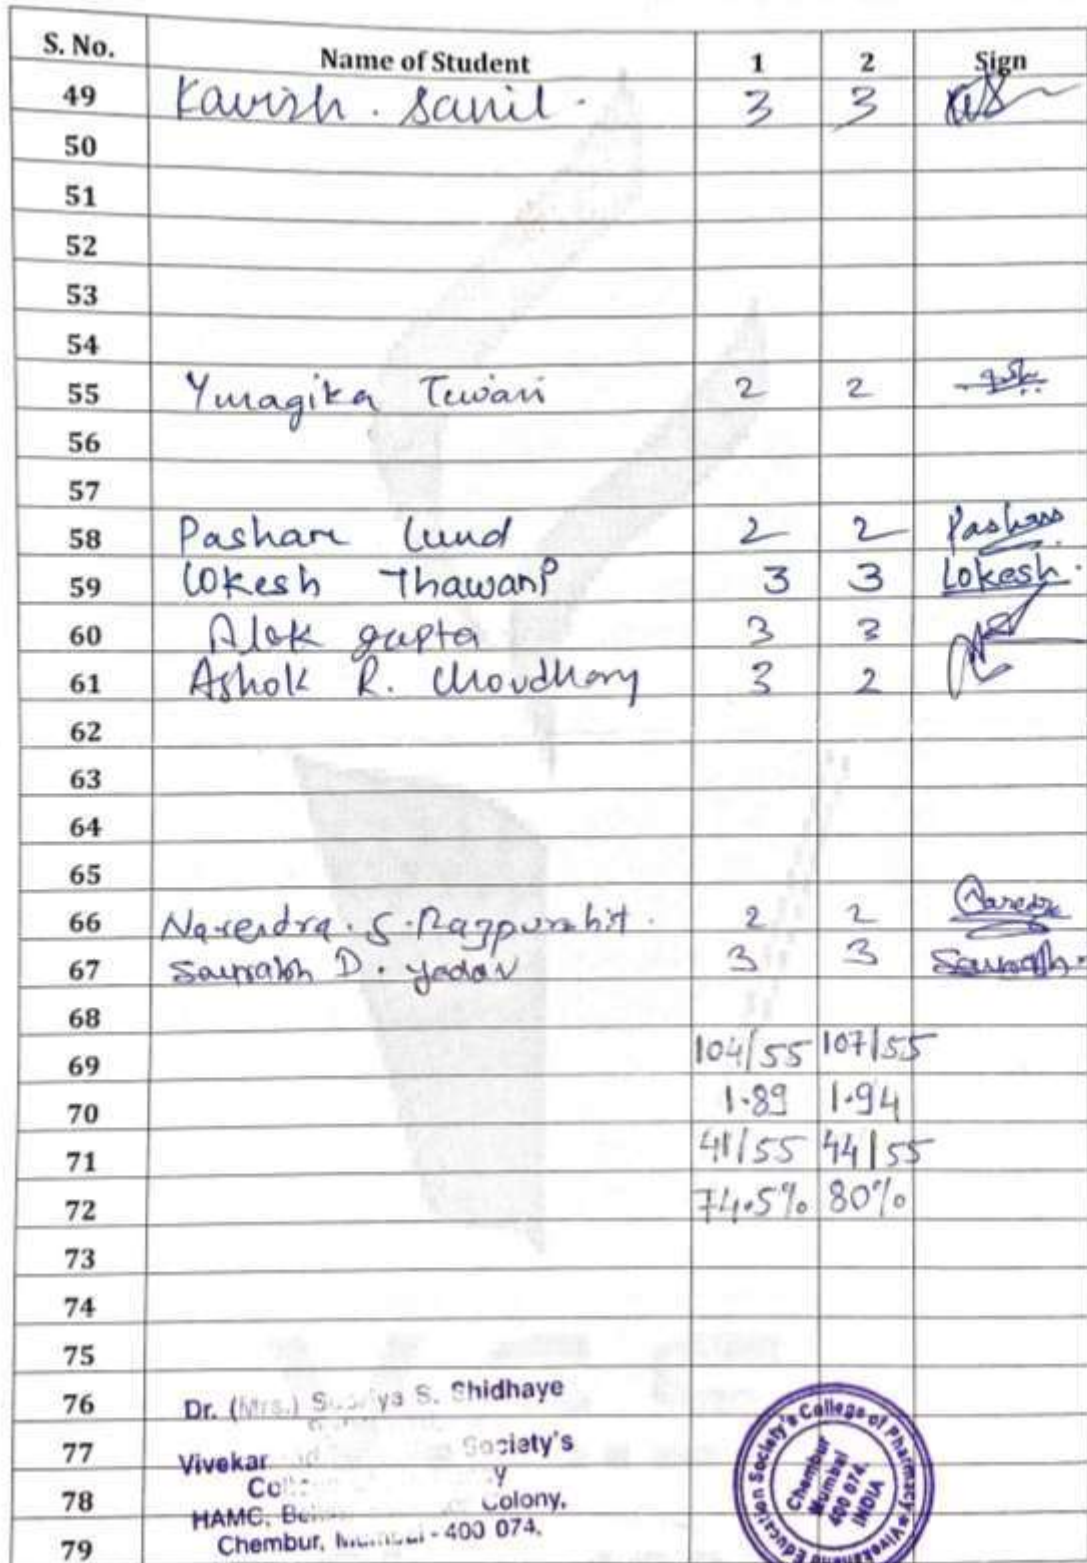 S. No. Name of Student 1 2 Sign
49 Kavish . Sanil . 3 3
50
51
52
53
54
55 Yuragika Tewari 2 2
56
57
58 Pashan Lund 2 2
59 Lokesh Thawani 3 3 Lokesh.
60 Alok gupta 3 3
61 Ashok R. Choudhary 3 2
62
63
64
65
66 Narendra. S. Rajpurohit. 2 2
67 Saurabh D. yadav 3 3 Saurabh.
68
69 104/55 107/55
70 1.89 1.94
71 41/55 44/55
72 74.5% 80%
73
74
75
76 Dr. (Mrs.) S. Shidhaye
77 Vivekan Society's
78
HAMC, Colony,
79 Chembur, - 400 074.
Education Society's College of Pharmacy
Chembur
Mumbai
400 074.
INDIA